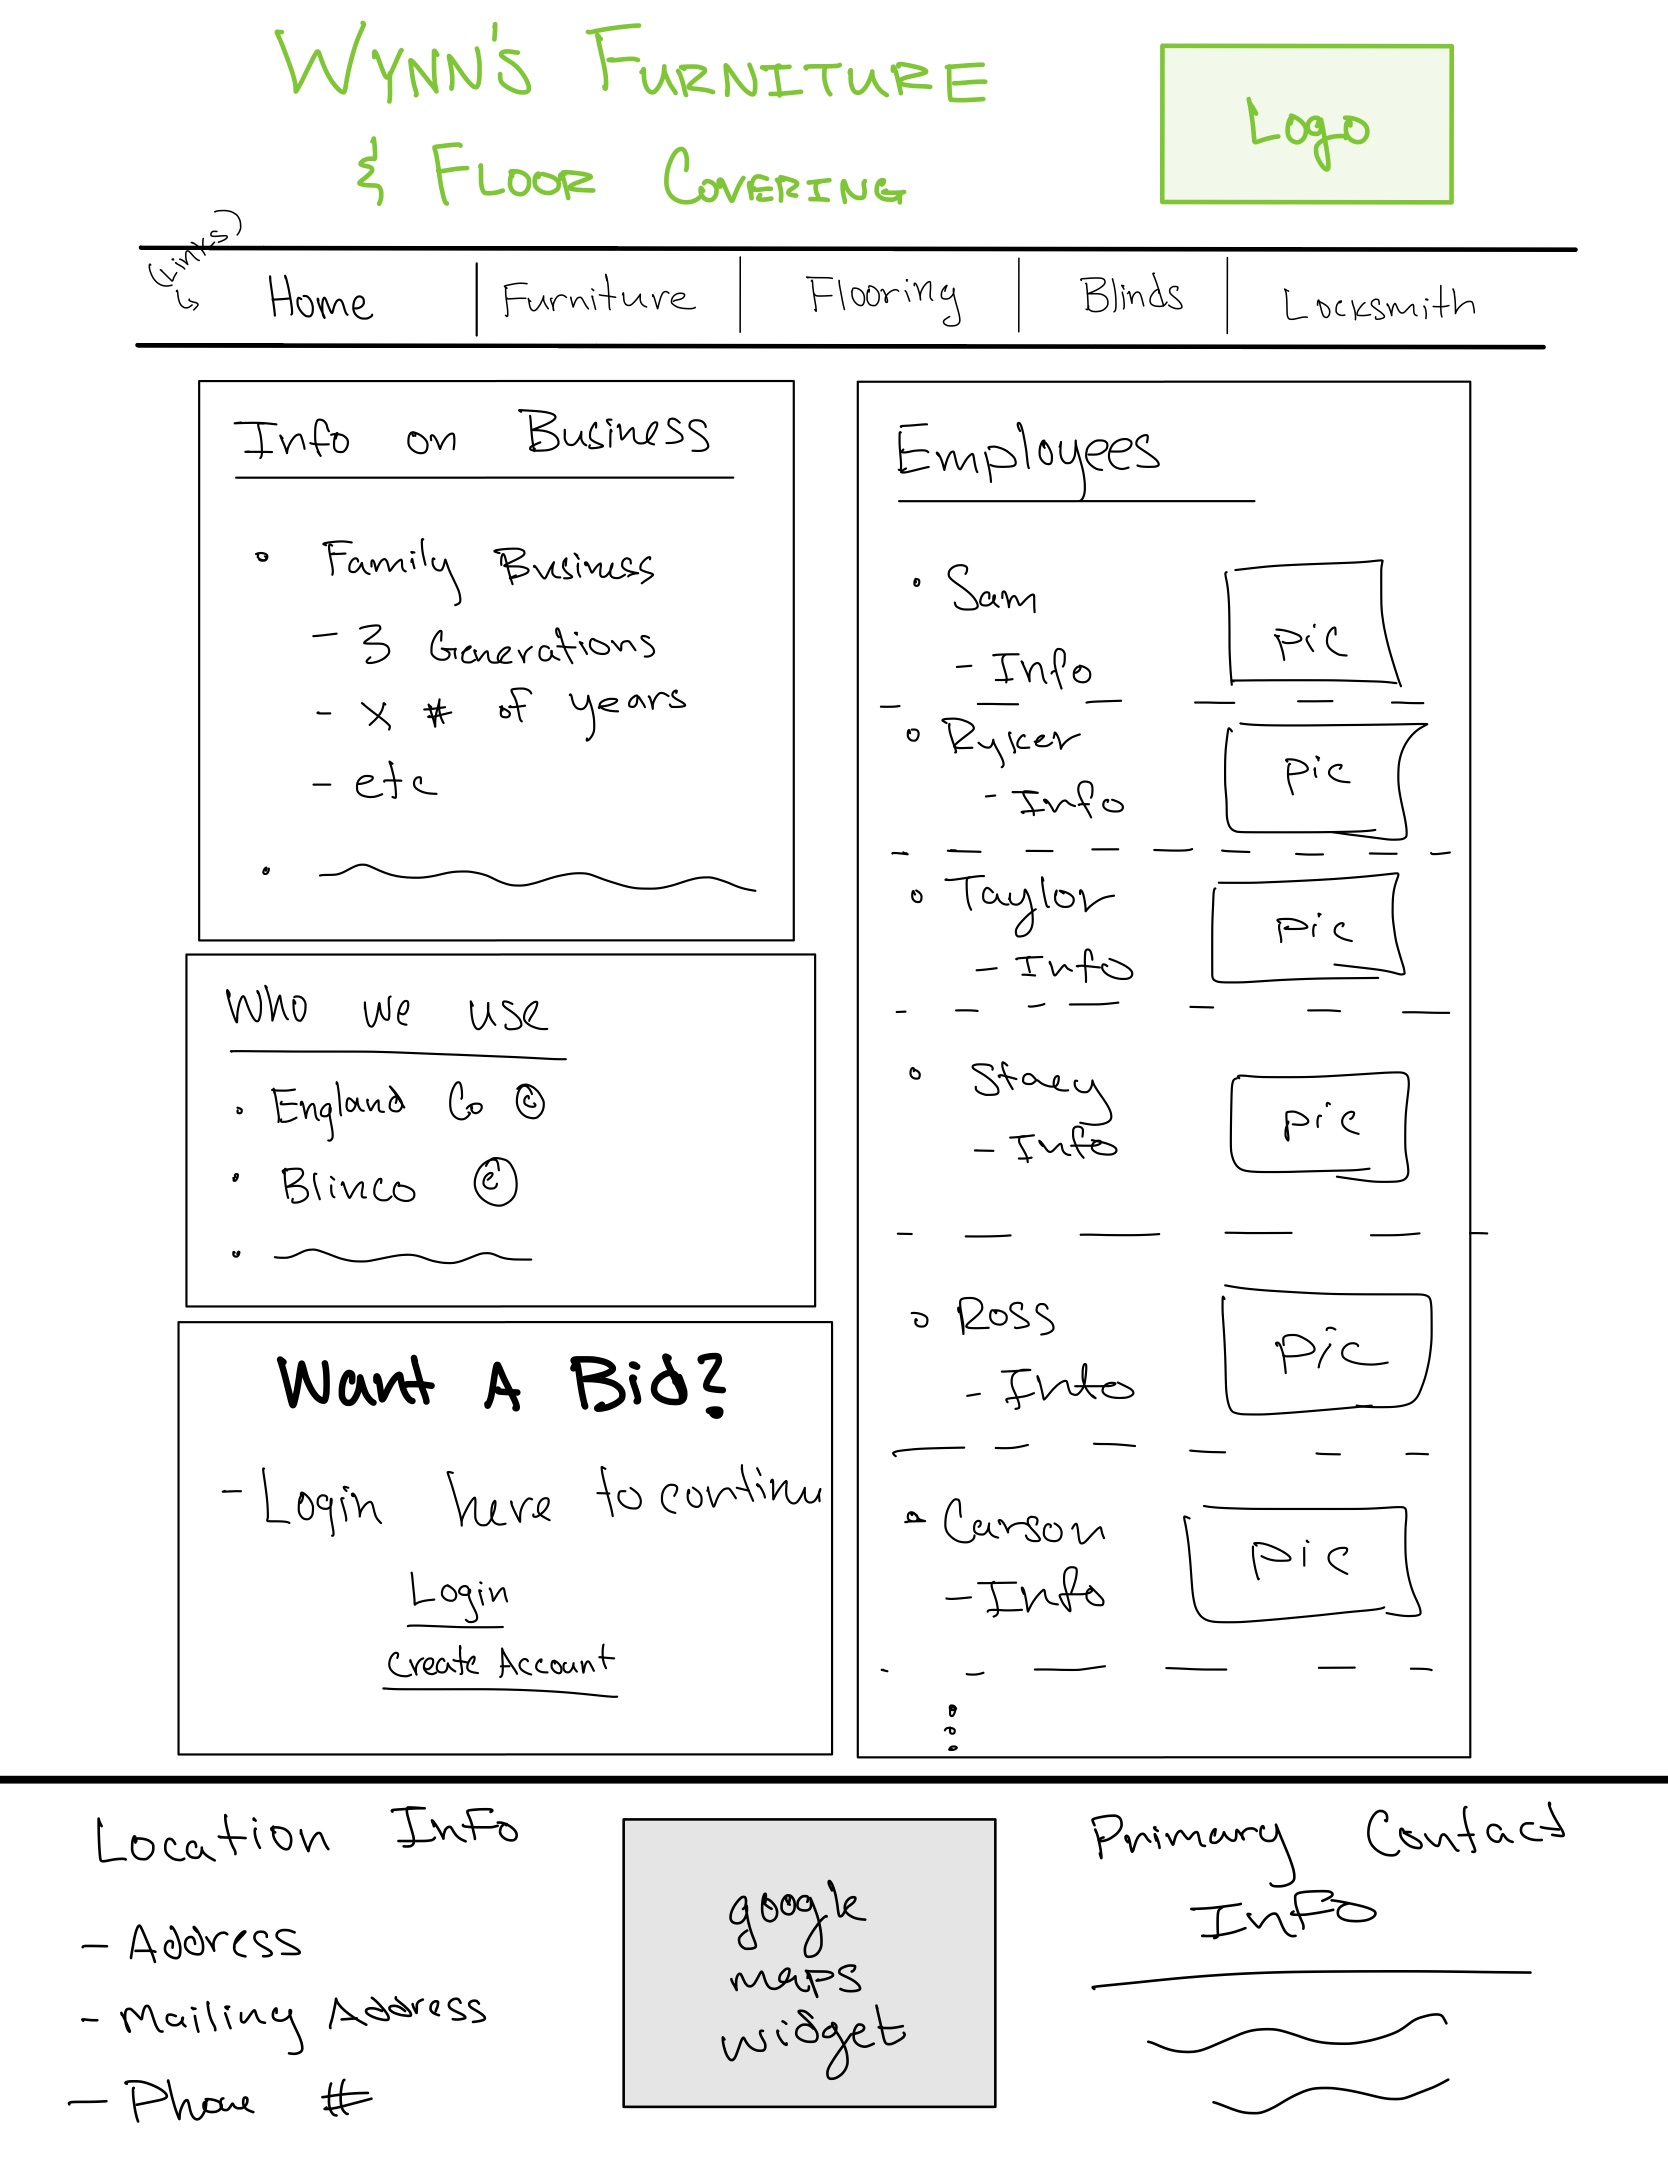 WYNN'S FURNITURE
& FLOOR COVERING
Logo
(Links)
Home
Furniture
Flooring
Blinds
Locksmith
Info on Business
Family Business
- 3 Generations
- X # of years
- etc
Who we use
England Co ©
Blinco ©
Want A Bid?
- Login here to continu
Login
Create Account
Employees
Sam
- Info
pic
Ryker
- Info
pic
Taylor
- Info
pic
Stacy
- Info
pic
Ross
- Info
pic
Carson
- Info
pic
Location Info
- Address
- Mailing Address
- Phone #
google
maps
widget
Primary Contact
Info